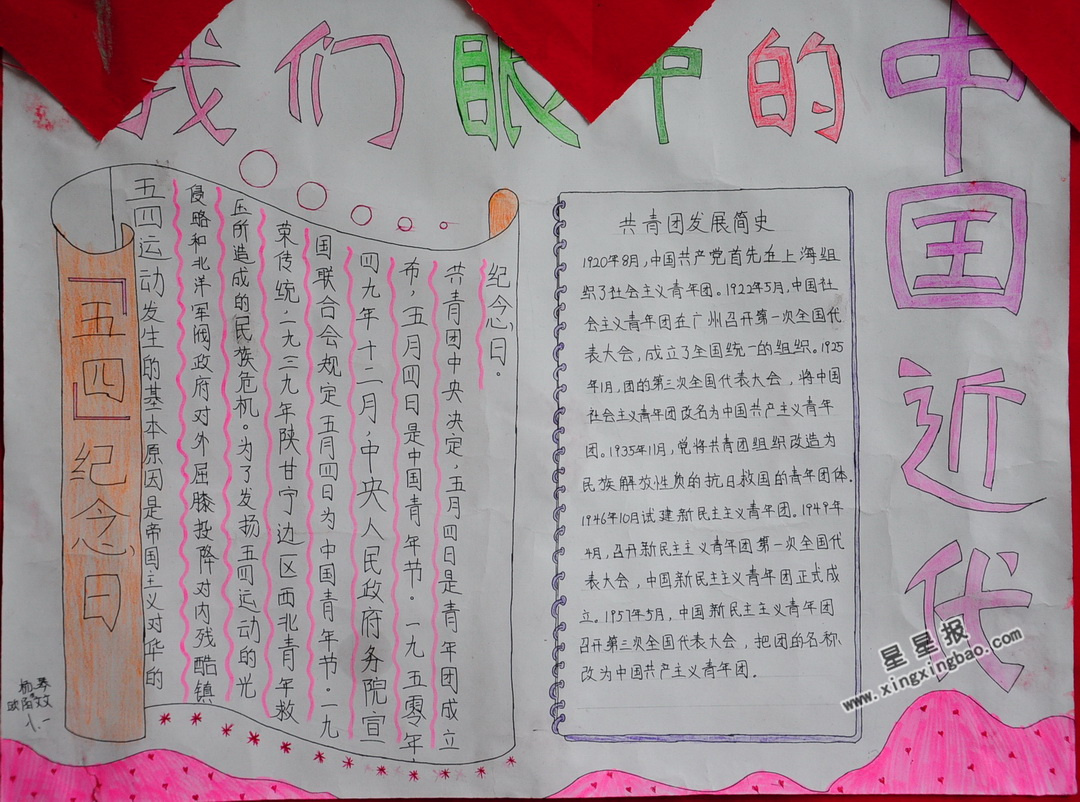 我们眼中的
中国近代
『五四』纪念日
五四运动发生的基本原因是帝国主义对华的
侵略和北洋军阀政府对外屈膝投降对内残酷镇
压所造成的民族危机。为了发扬五四运动的光
荣传统,一九三九年陕甘宁边区西北青年救
国联合会规定五月四日为中国青年节.一九
四九年十二月,中央人民政府务院宣
布,五月四日是中国青年节.一九五零年,
共青团中央决定,五月四日是青年团成立
纪念日.
共青团发展简史
1920年8月,中国共产党首先在上海组
织了社会主义青年团。1922年5月,中国社
会主义青年团在广州召开第一次全国代
表大会,成立了全国统一的组织。1925
年1月,团的第三次全国代表大会,将中国
社会主义青年团改名为中国共产主义青年
团。1935年11月,党将共青团组织改造为
民族解放性质的抗日救国的青年团体.
1946年10月试建新民主主义青年团。1949年
4月,召开新民主主义青年团第一次全国代
表大会,中国新民主主义青年团正式成
立。1957年5月,中国新民主主义青年团
召开第三次全国代表大会,把团的名称
改为中国共产主义青年团.
星星报
www.xingxingbao.com